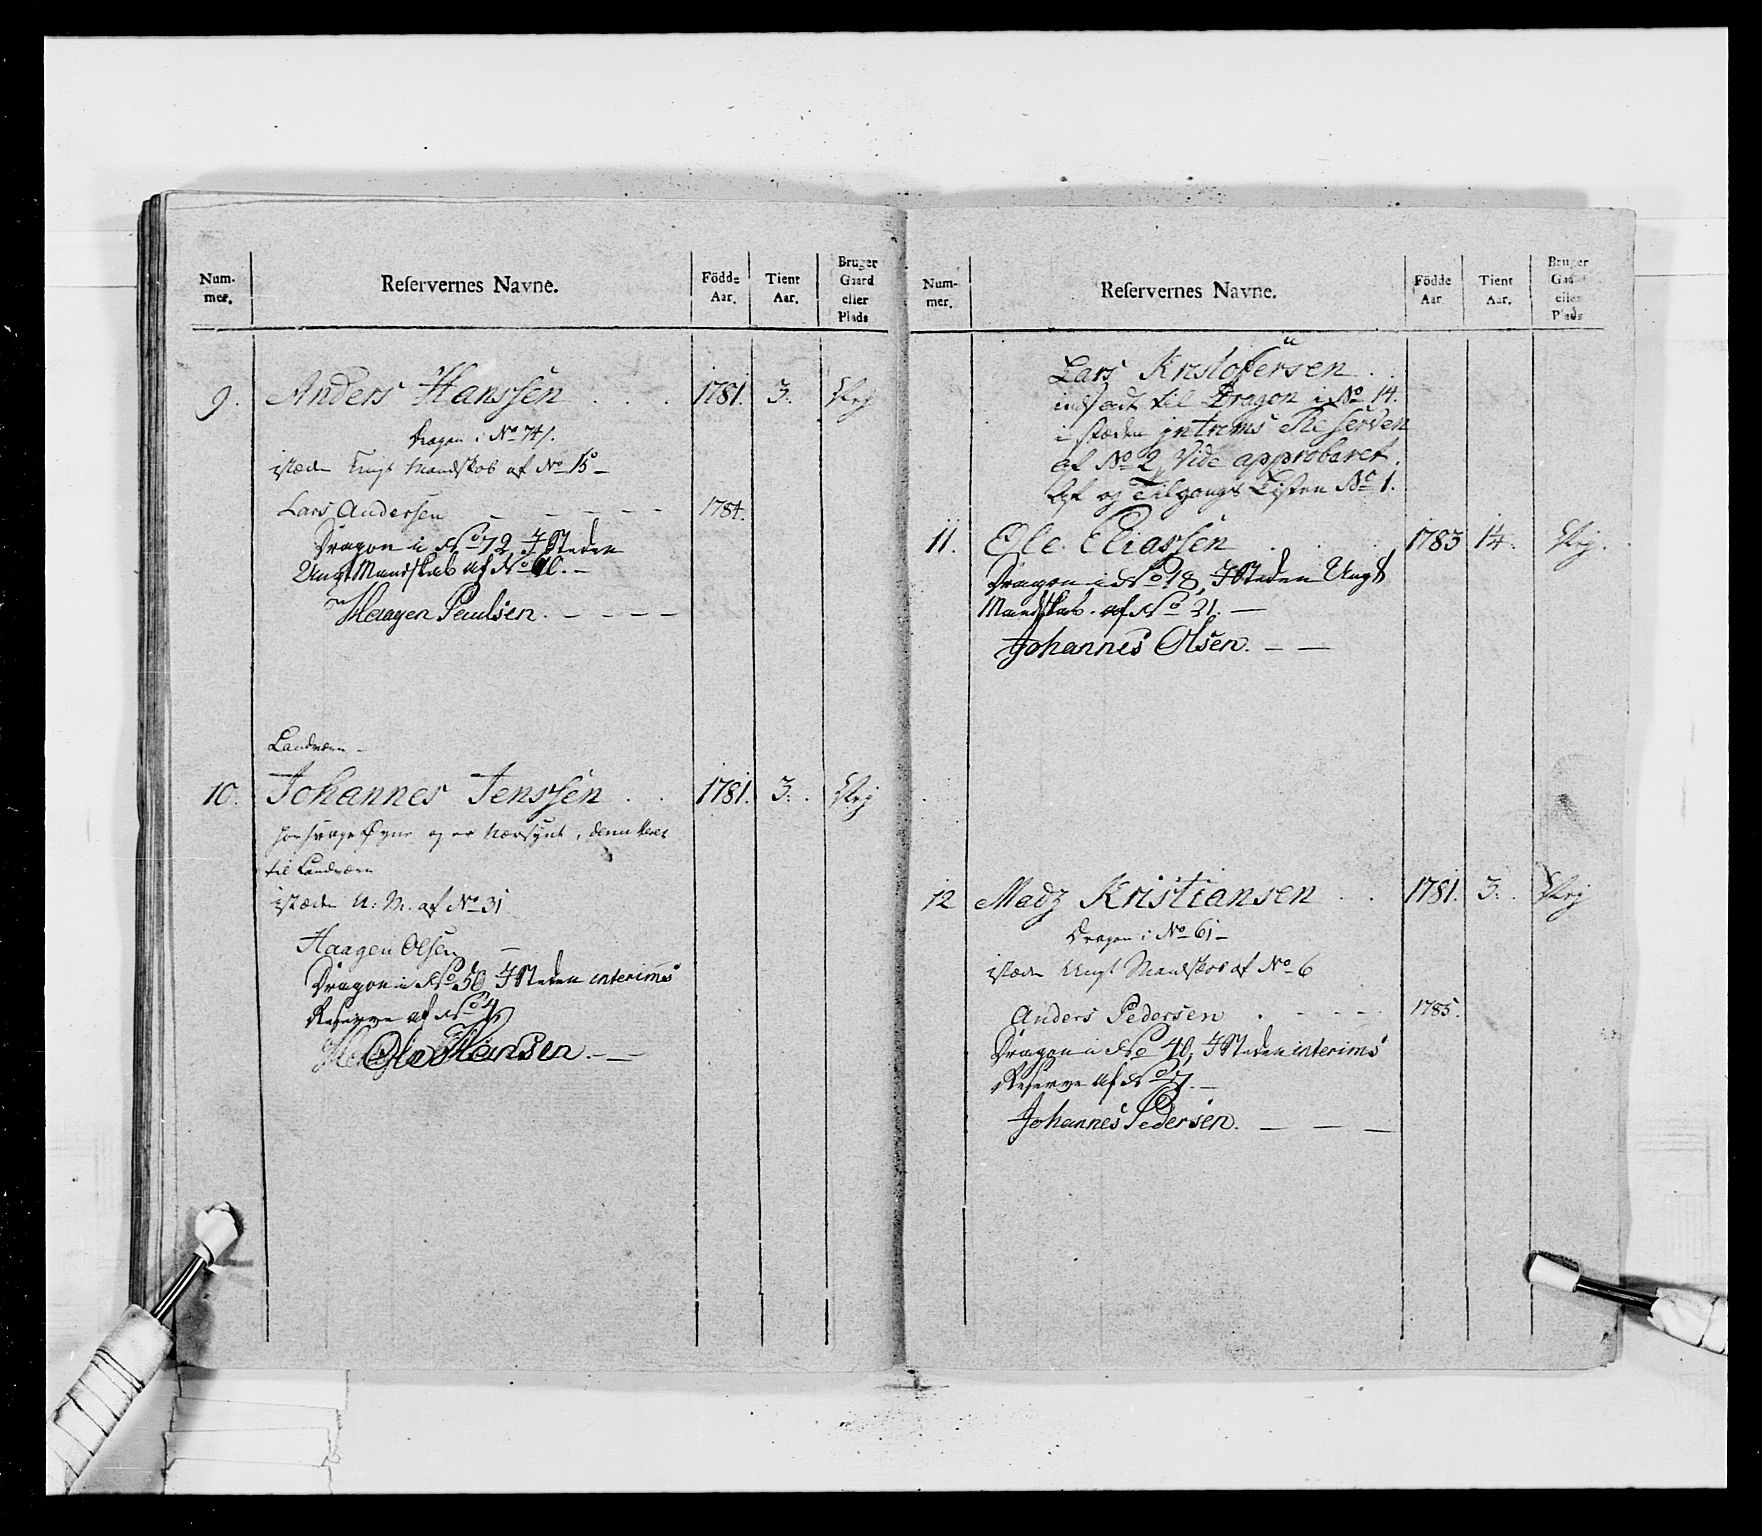 Num-
mer.
Reservernes Navne.
Födde
Aar.
Tient
Aar.
Bruger
Gaard
eller
Plads
9. Anders Hanssen . . . 1781. 3.
Dragon i No 74.
istæden Ungt Mandskab af No 15 —
Lars Andersen — — — — — 1784.
Dragon i No 72 I Steden
Ungt Mandskab af No 10. —
Haagen Paulsen. — — — —
Landværn —
10. Johannes Jenssen . . 1781. 3. .
har svage Øyne og er Nærsynt,
til Landværn
istæden U: M. af No 31
Haagen Olsen —
Dragon i No 50 I Steden interims
Reserve af No 4
Ole Hansen. —
Num-
mer.
Reservernes Navne.
Födde
Aar.
Tient
Aar.
Bruger
Gaard
eller
Plads
Lars Kristofersen . .
indsadt til Dragon i No 14.
i stæden intrims Reserven
af No 2, Vide approbaret
Af og Tilgangs Listen No 1.
11. Ole Eliassen . . . 1783 14.
Dragon i No 18, I Steden Ungt
Mandskab. af No 21. —
Johannes Olsen. — —
12 Madz Kristiansen . . 1781. 3. .
Dragon i No 61 —
istæden Ungt Mandskab af No 6
Anders Pedersen . — — — 1785.
Dragon i No 40, I Steden interims
Reserve af No 7. —
Johannes Pedersen. — — —